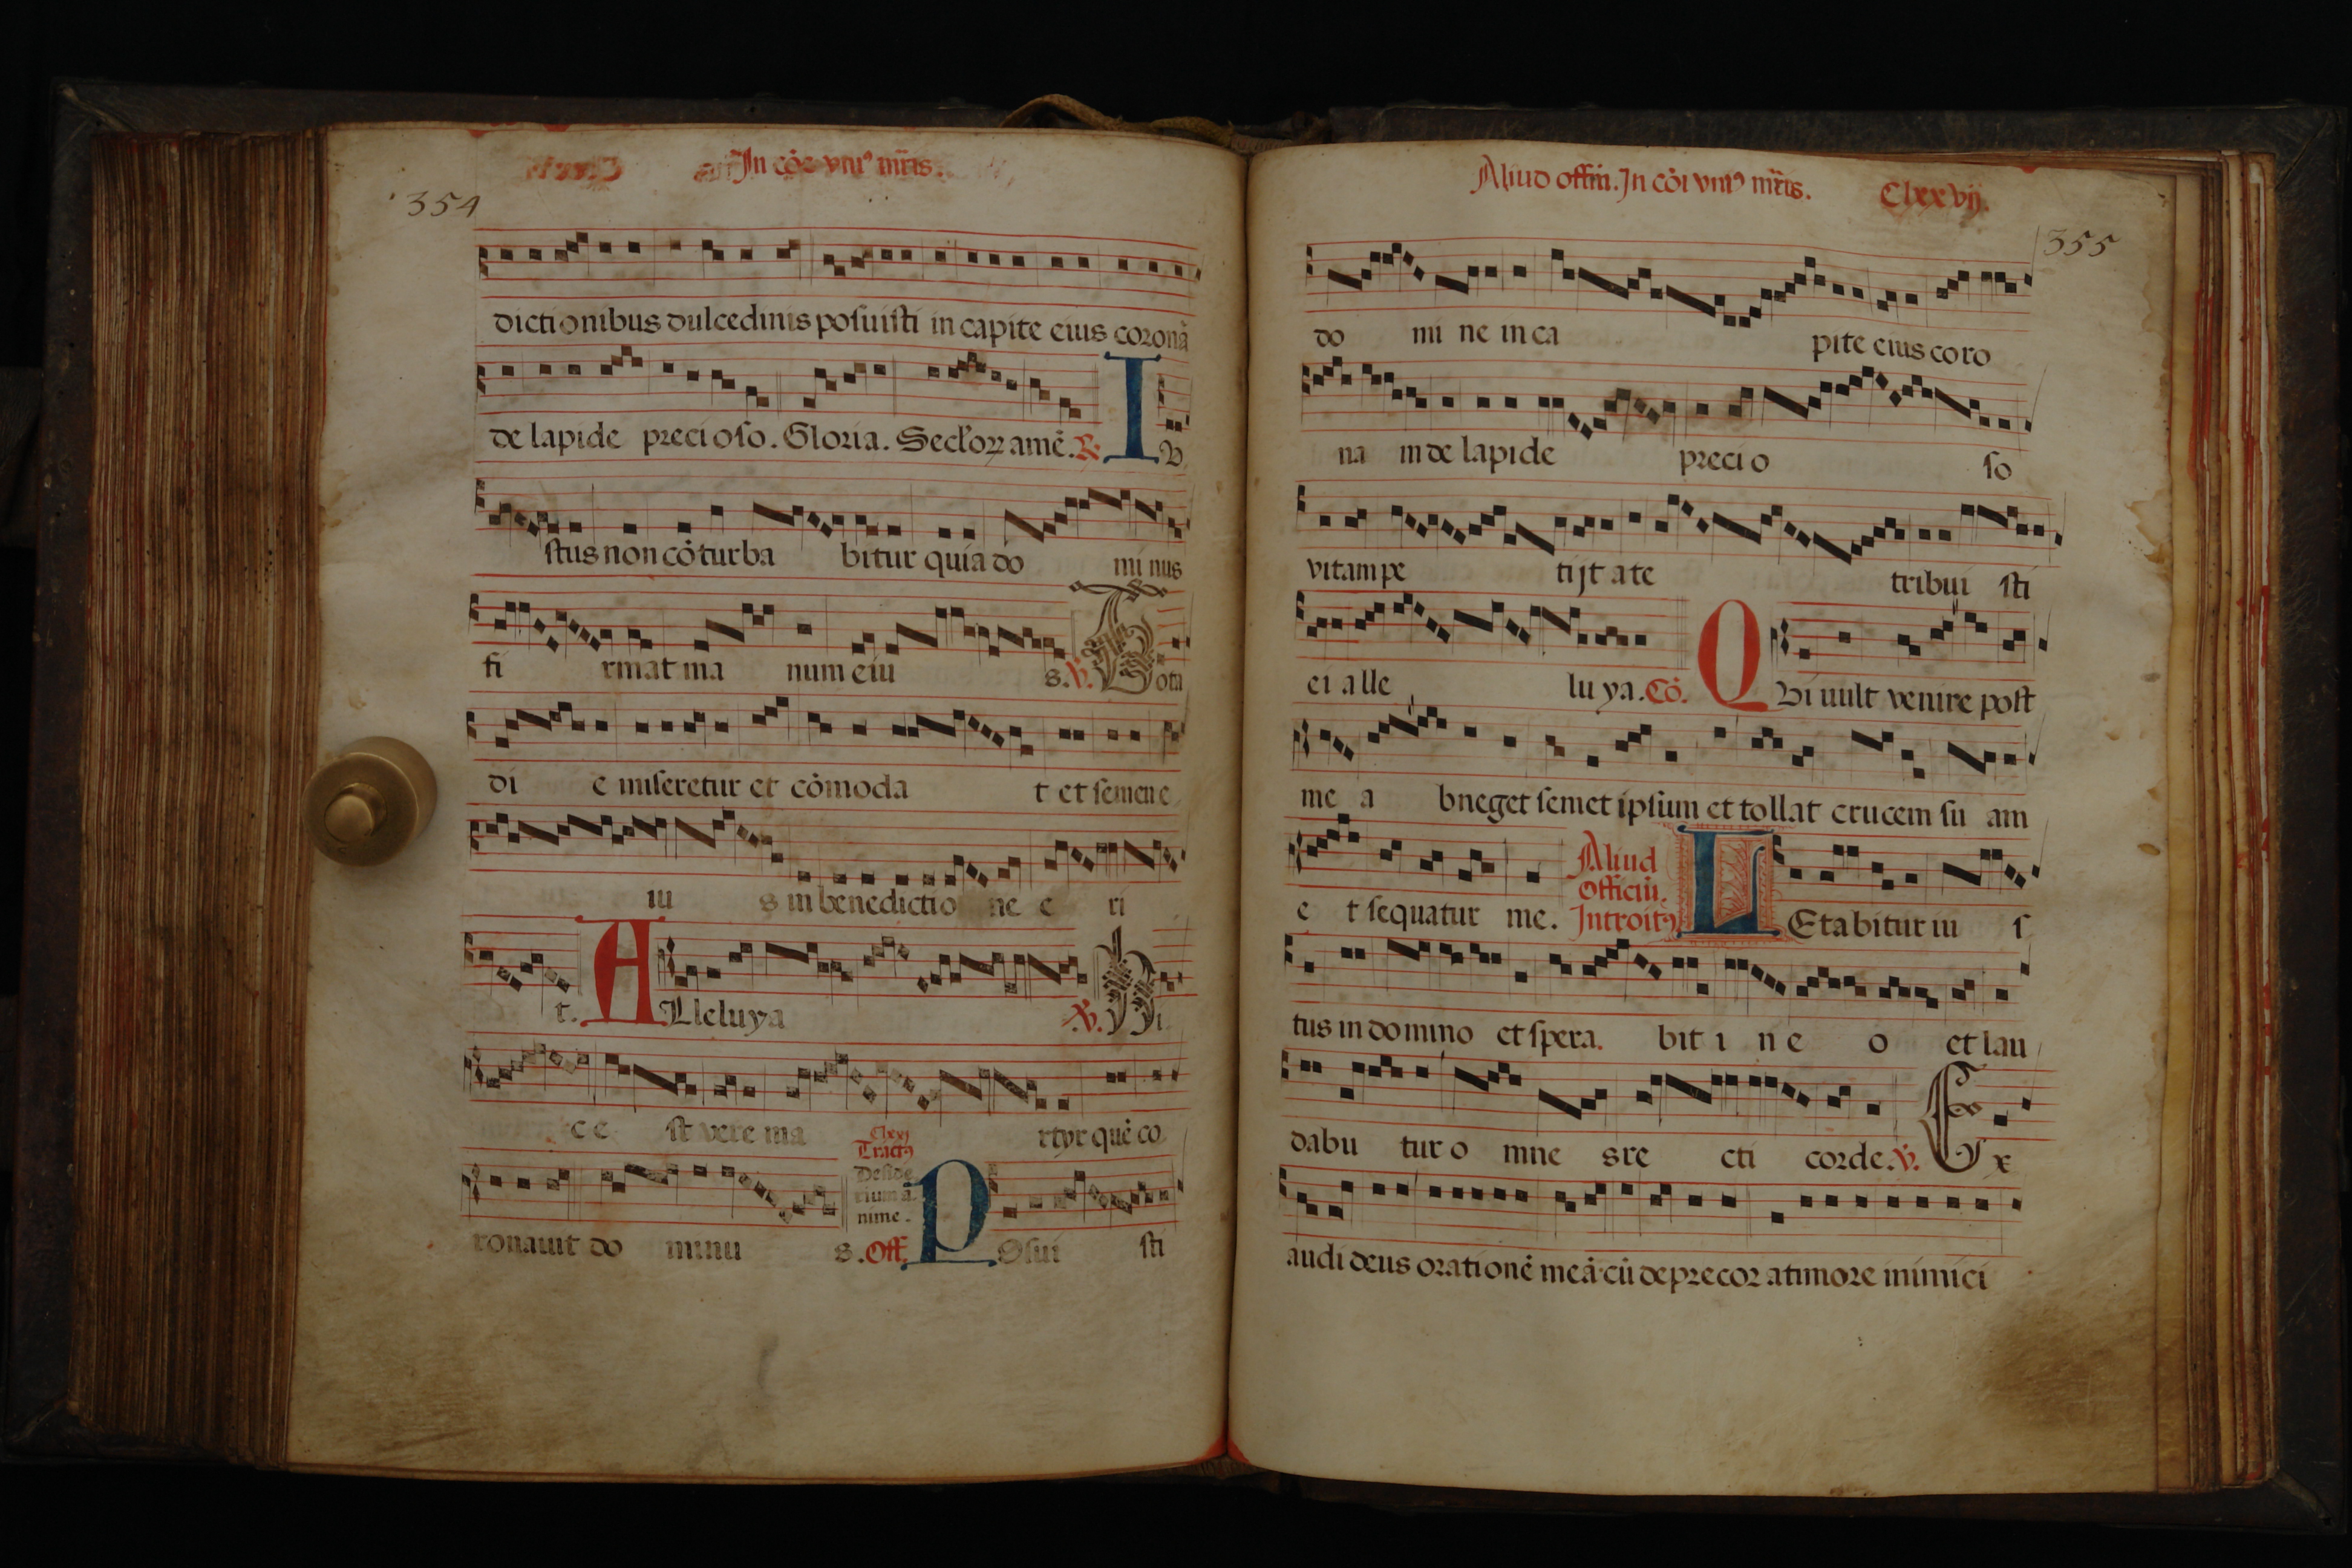 In cōe vniꝰ mr̄is.
354
dictionibus dulcedinis posuisti in capite eius coronā
de lapide precioso. Gloria. Secłoꝝ amē. ℟. I V
stus non cōturba bitur quia do mi nus
fi rmat ma num eiu s. ℣. Tota
di e miseretur et cōmoda t et semen e
iu s in benedictio ne e ri
t. ALleluya ℣. Hi
c e st vere ma rtyr quē co
Clxxj
Tractꝰ
Deside
rium a
nime.
ronauit do minu s. Off. POsui sti
Aliud offim̄. In cōi vniꝰ mr̄is. Clxxvij.
355
do mi ne in ca pite eius coro
na m de lapide precio so
vitam pe tijt a te tribui sti
ei alle lu ya. Cō. QVi uult venire post
me a bneget semet ipsum et tollat crucem su am
e t sequatur me. Aliud
Officiū.
Introitꝰ LEtabitur iu s
tus in domino et spera. bit i n e o et lau
dabu tur o mne s re cti corde. ℣. Ex
audi deus orationē meā cū deprecor a timore inimici